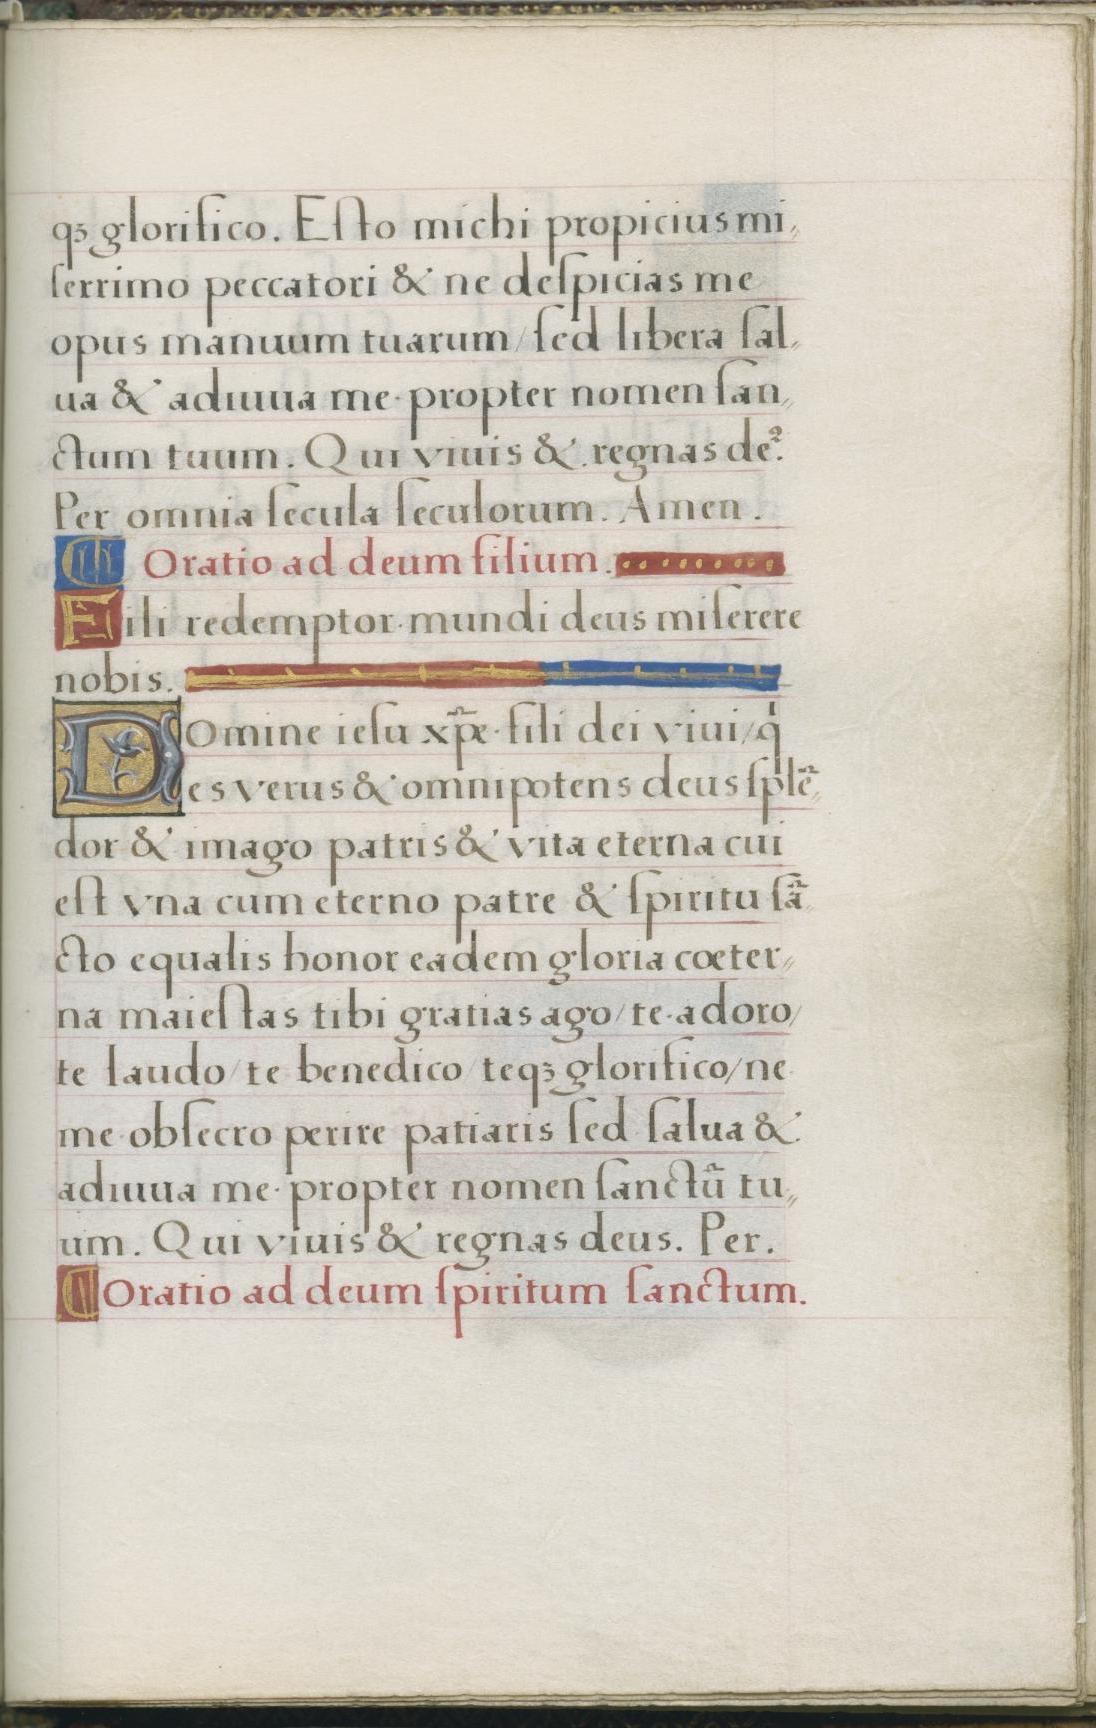 qꝫ glorifico. Eſto michi propicius mi,,
ſerrimo peccatori & ne deſpicias me
opus manuum tuarum / ſed libera ſal,,
ua & adiuua me · propter nomen ſan,,
ctum tuum. Qui viuis & regnas de᷒.
Per omnia ſecula ſeculorum. Amen.
Oratio ad deum filium.
Fili redemptor · mundi deus miſerere
nobis.
Domine ieſu xp̄e · fili dei viui / qͥ
es verus & omnipotens deus ſplē,,
dor & imago patris & vita eterna cui
eſt vna cum eterno patre & ſpiritu ſā,,
cto equalis honor eadem gloria coeter,,
na maieſtas tibi gratias ago / te · adoro /
te laudo / te benedico / teqꝫ glorifico / ne
me obſecro perire patiaris ſed ſalua &
adiuua me · propter nomen ſanctū tu,,
um. Qui viuis & regnas deus. Per.
Oratio ad deum ſpiritum ſanctum.